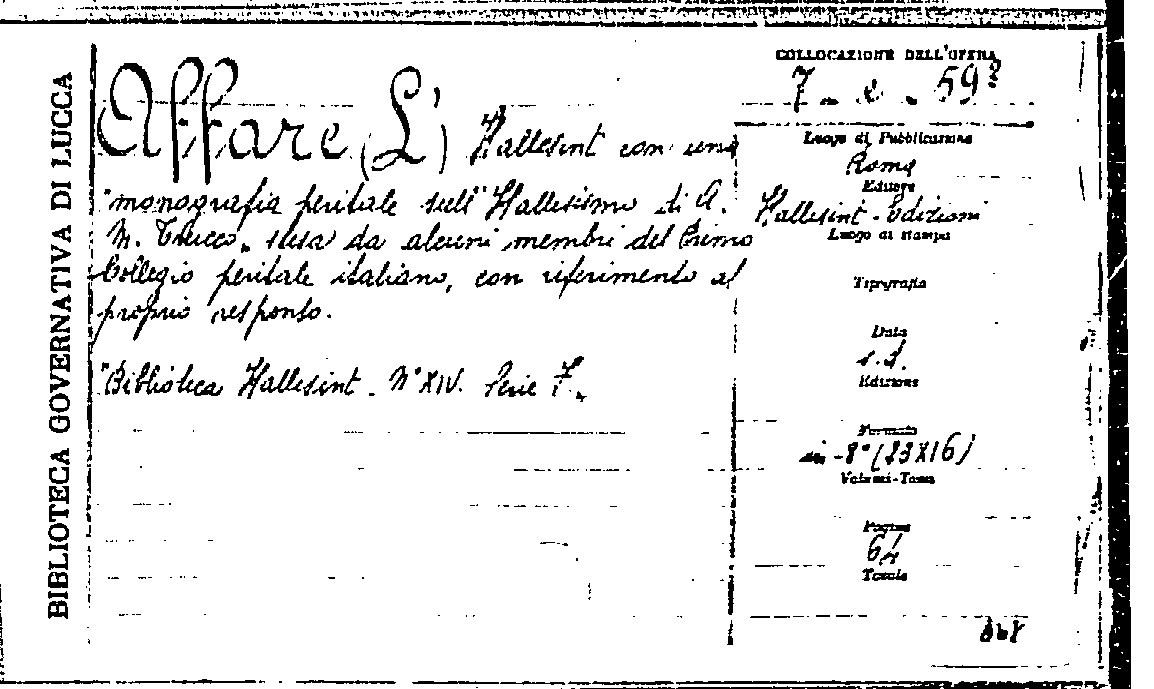 BIBLIOTECA GOVERNATIVA DI LUCCA
Affare (L') Hallesint con una
"monografia peritale sull'Hallesismo di A.
M. Trucco" stesa da alcuni membri del Primo
Collegio peritale italiano, con riferimento al
proprio responso.
"Biblioteca Hallesint - N° XIV. Serie F"
COLLOCAZIONE DELL'OPERA
7 - e - 59
Luogo di Pubblicazione
Roma
Editore
Hallesint - Edizioni
Luogo di stampa
Tipografia
Data
s.d.
Edizione
Formato
in-8° (23X16)
Volumi-Tomi
Pagine
64
Tavole